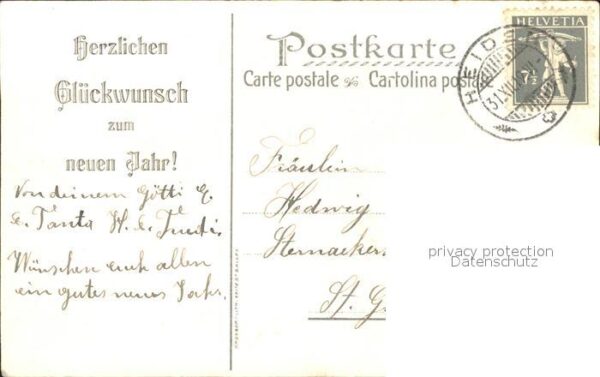 Herzlichen
Glückwunsch
zum
neuen Jahr!
Von deinem Götti E.
& Tante H. &
Wünschen euch allen
ein gutes neues Jahr.
Postkarte
Carte postale Cartolina posta
HELVETIA
7½
HEID
31.XII
Fräulein
Hedwig
Sternacker
St. G
privacy protection
Datenschutz